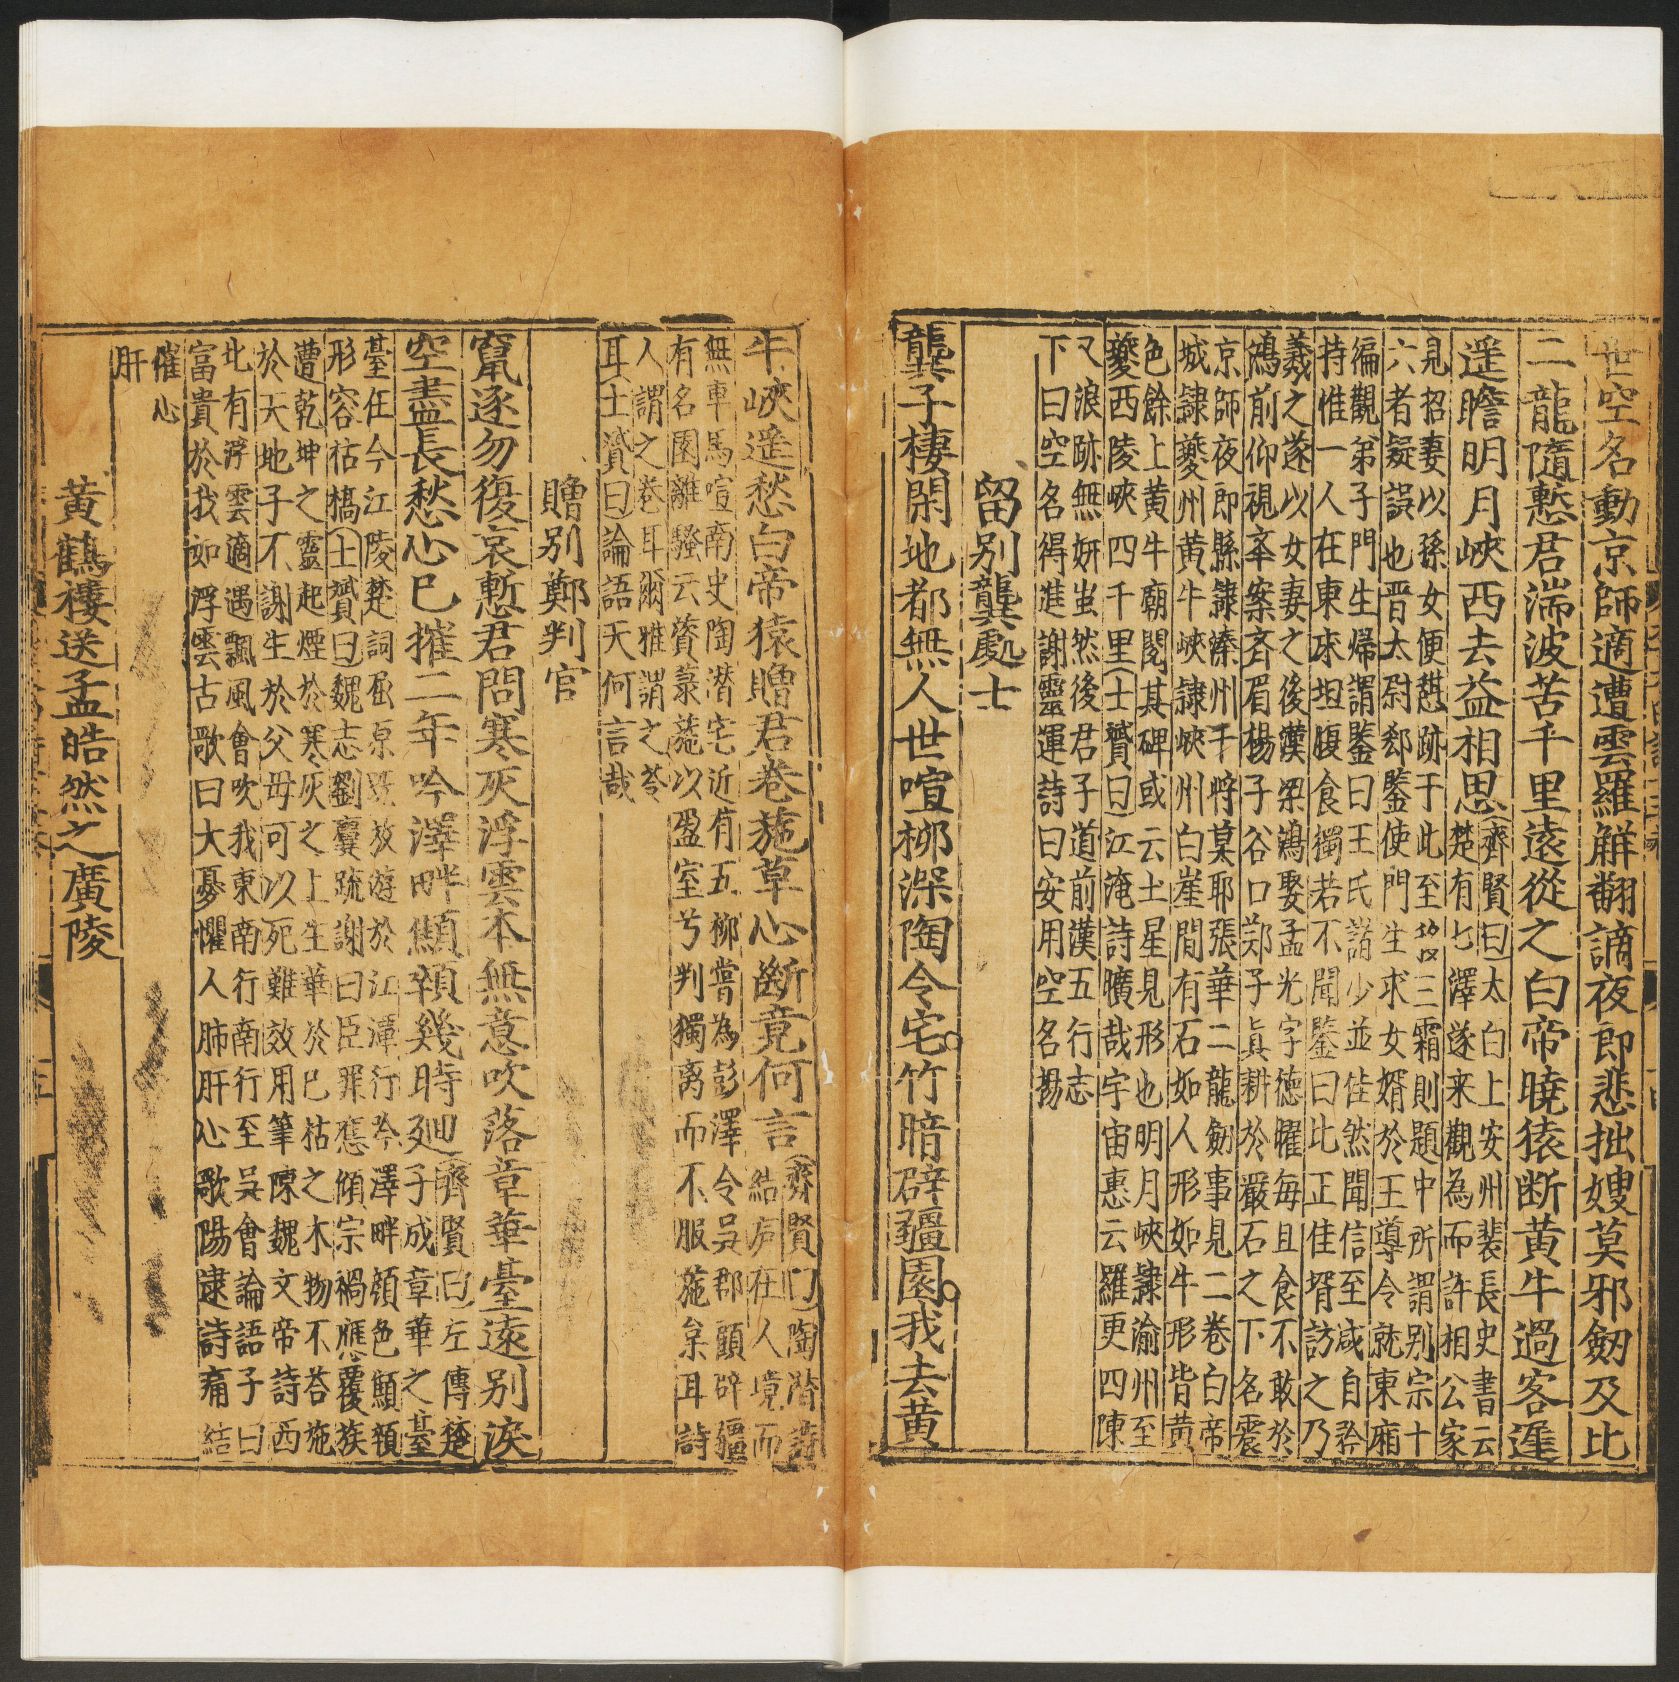 世空名動京師適遭雲羅解翻謫夜郎悲拙嫂莫邪劒及比
二龍隨慙君湍波苦千里遠從之白帝曉猿断黄牛過客遲
遥瞻明月峽西去益相思
齊賢曰太白上安州裴長史書云
楚有七澤遂来觀為而許相公家
見招妻以孫女便憇跡于此至三霜則題中所謂别宗十
六者疑誤也晋太尉郄鑒使門生求女婿於王導令就東廂
徧觀弟子門生歸謂鑒曰王氏諸少並佳然聞信至咸自矜
持惟一人在東床坦腹食獨若不聞鑒曰比正佳壻訪之乃
羲之遂以女妻之後漢梁鴻娶孟光字徳曜每且食不敢於
鴻前仰視举案齐眉楊子谷口郑子眞耕於巖石之下名震
京師夜郎縣隷溱州干將莫耶張華二龍劒事見二巻白帝
城隷夔州黄牛峽隷峽州白崖間有石如人形如牛形皆黄
色餘上黄牛廟閱其碑或云土星見形也明月峽隷渝州至
夔西陵峽四千里士贇曰江淹詩曠哉宇宙惠云羅更四陳
又浪跡無妍蚩然後君子道前漢五行志
下曰空名得進謝靈運詩曰安用空名揚
留别龔處士
龔子棲閑地都無人世喧柳深陶令宅竹暗辟疆園我去黄
牛峽遥愁白帝猿贈君卷葹草心断竟何言
齊賢曰陶潜詩
結庐在人境而
無車馬喧南史陶潜宅近有五柳嘗為彭澤令吴郡顧辟疆
有名園離騷云薋菉葹以盈室兮判獨离而不服葹枲耳詩
人謂之卷耳爾雅謂之苓
耳士贇曰論語天何言哉
贈别鄭判官
竄逐勿復哀慙君問寒灰浮雲本無意吹落章華臺遠别淚
空盡長愁心已摧二年吟澤畔顦顇幾時廻
齊賢曰左傳楚
子成章華之臺
臺在今江陵楚詞屈原既放遊於江潭行吟澤畔顔色顦顇
形容枯槁士贇曰魏志劉廙疏謝曰臣罪應傾宗禍應覆族
遭乾坤之靈起煙於寒灰之上生華於已枯之木物不荅施
於天地子不謝生於父毋可以死難效用筆陳魏文帝詩西
北有浮雲適遇飄風會吹我東南行南行至吴會論語子曰
富貴於我如浮雲古歌曰大憂懼人肺肝心歐陽建詩痛結
催心
肝
黄鶴樓送孟皓然之廣陵